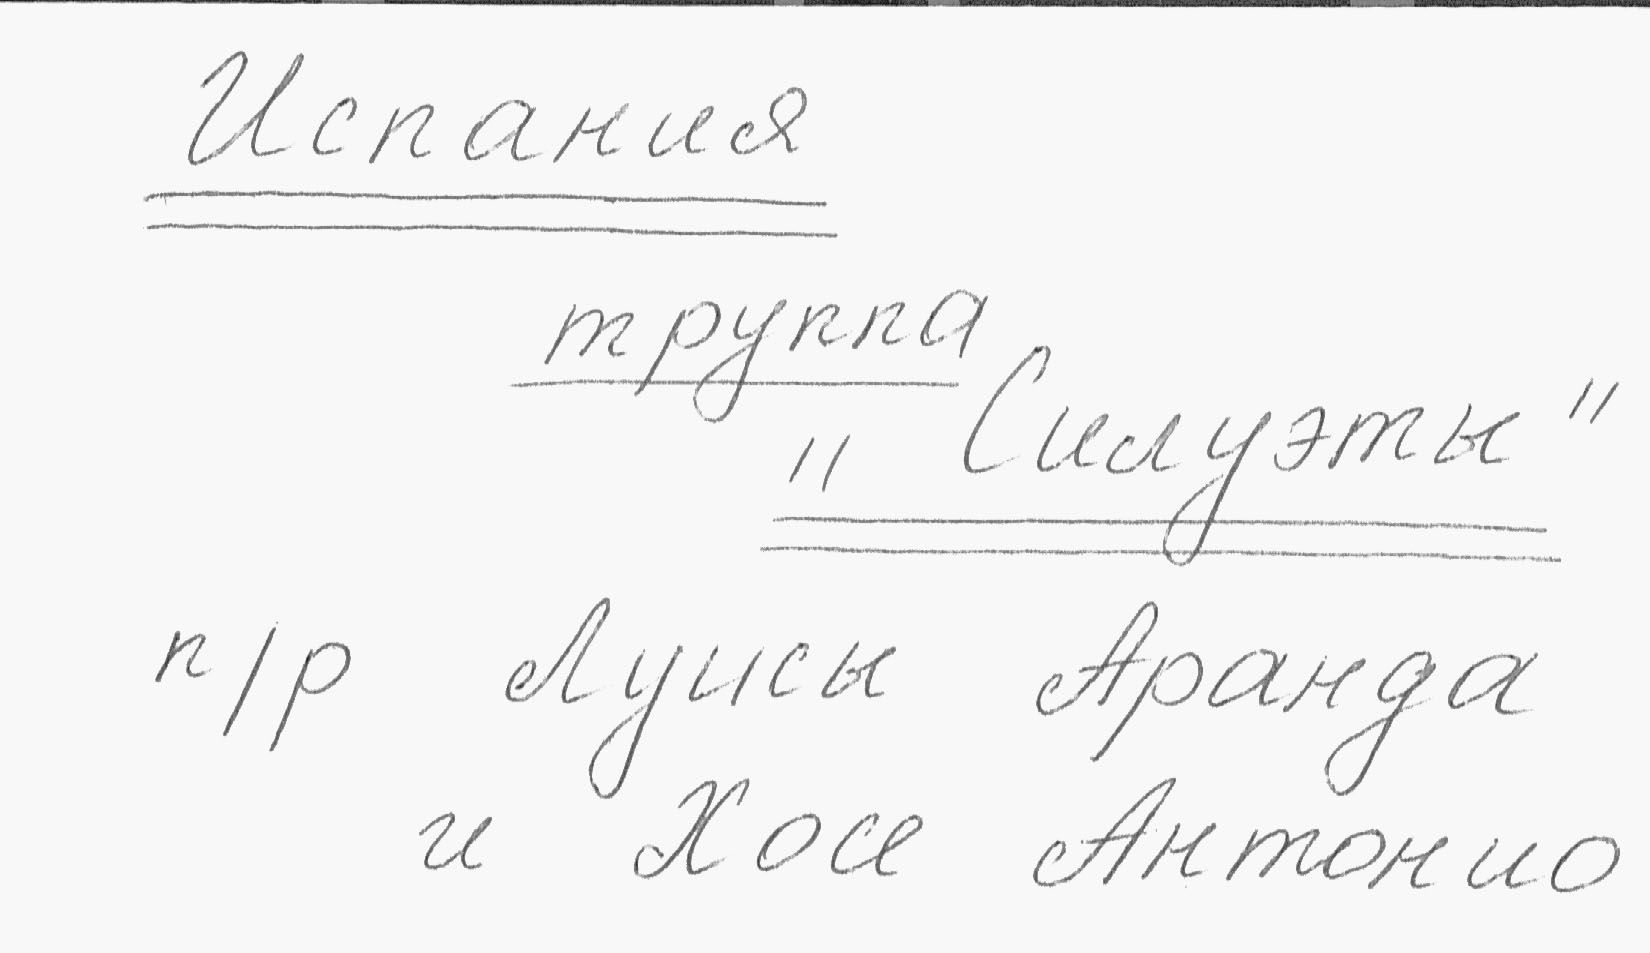 Испания
труппа
"Силуэты"
п/р Луисы Аранда
и Хосе Антонио